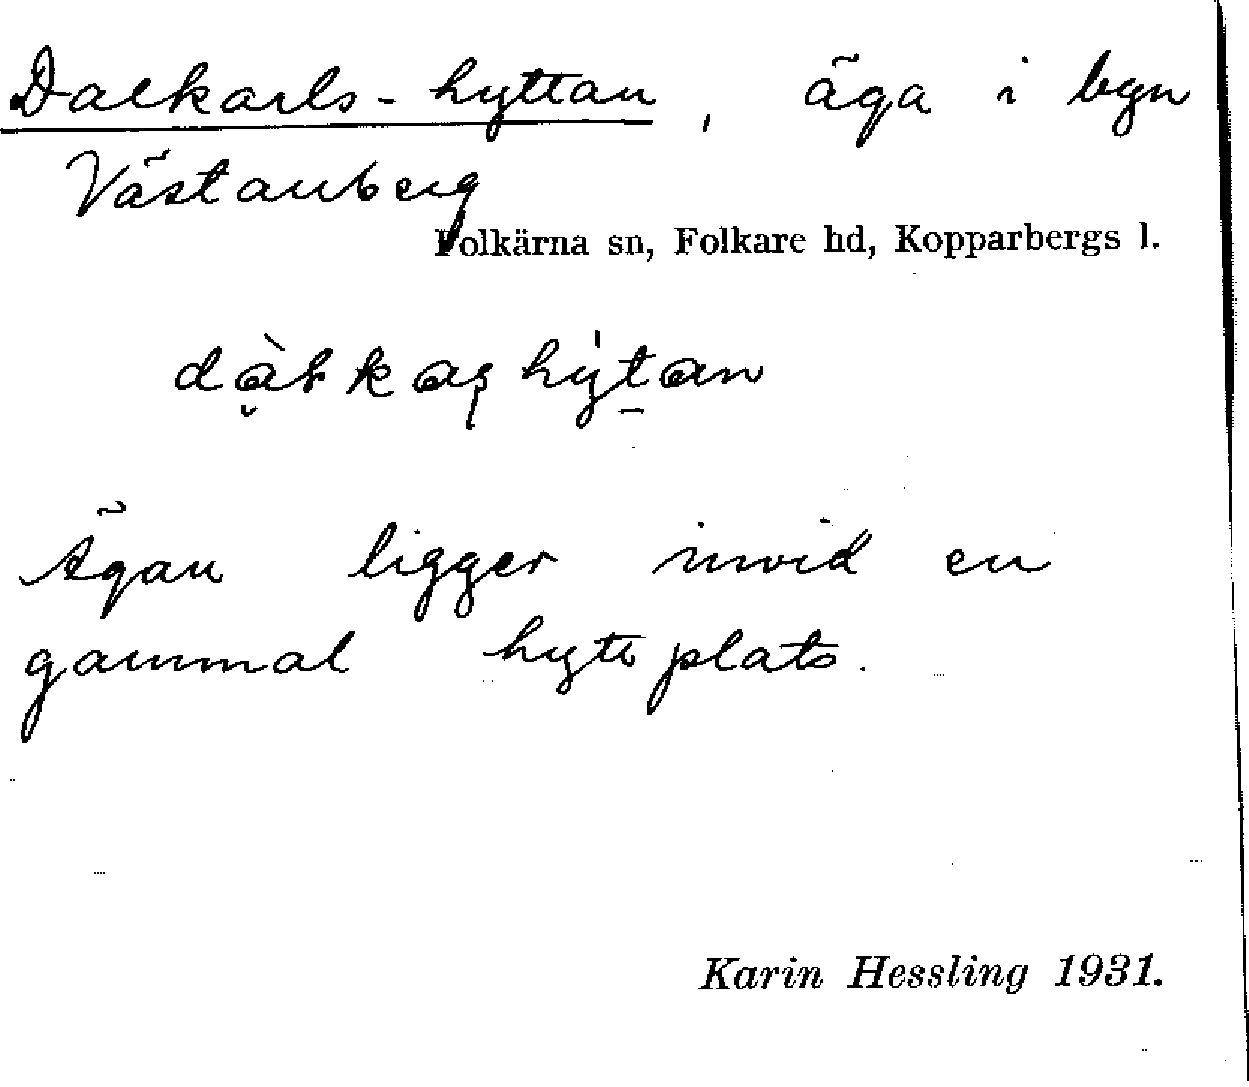 Dalkarls-hyttan, äga i byn
Västanberg
Folkärna sn, Folkare hd, Kopparbergs l.
Ägan ligger invid en
gammal hyttplats.
Karin Hessling 1931.